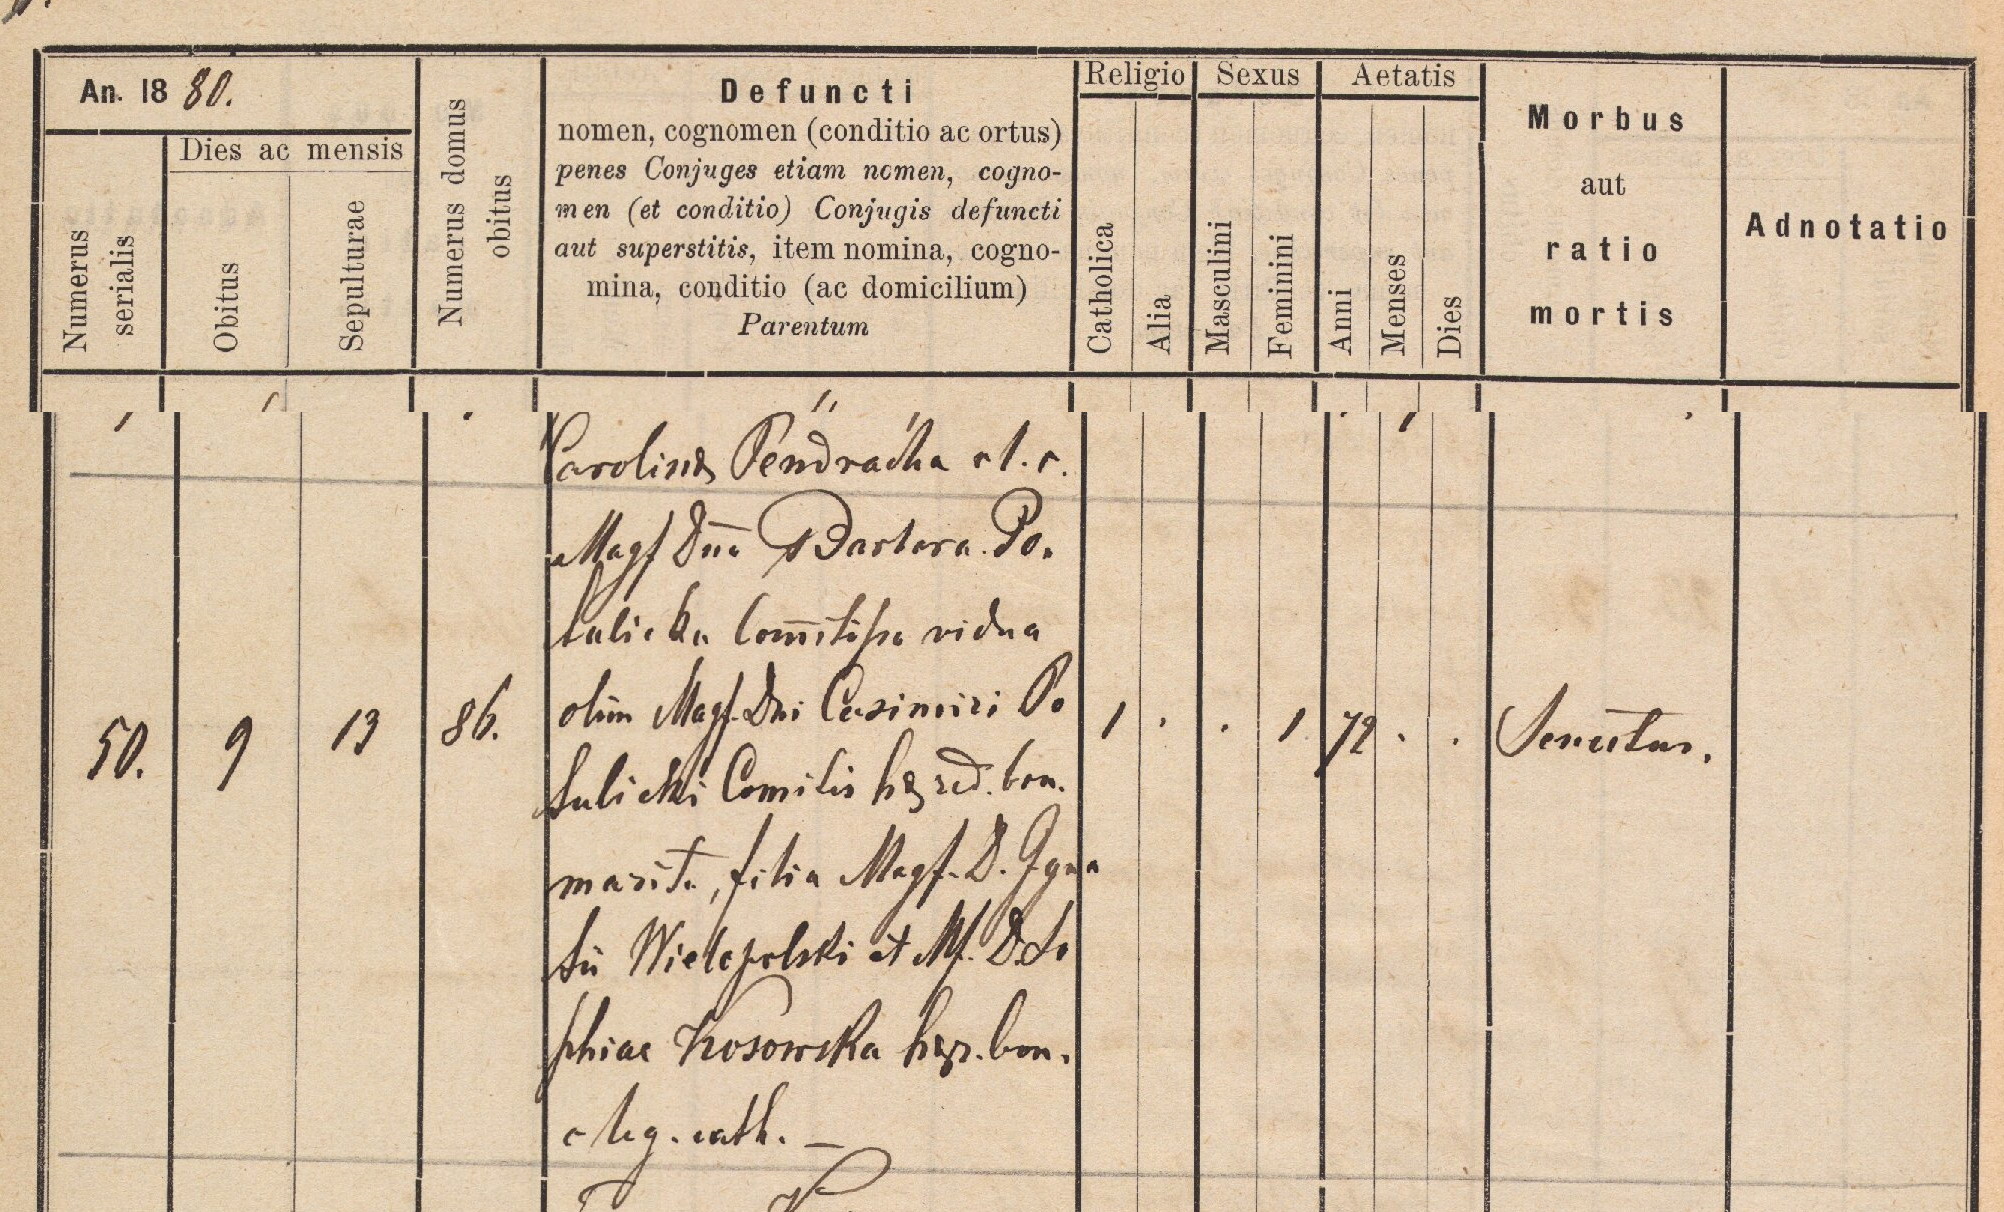 An. 18 80.
Dies ac mensis
Numerus serialis
Obitus
Sepulturae
Numerus domus obitus
Defuncti
nomen, cognomen (conditio ac ortus)
penes Conjuges etiam nomen, cogno-
men (et conditio) Conjugis defuncti
aut superstitis, item nomina, cogno-
mina, conditio (ac domicilium)
Parentum
Religio
Catholica
Alia
Sexus
Masculini
Feminini
Aetatis
Anni
Menses
Dies
Morbus
aut
ratio
mortis
Adnotatio
Carolinæ Pendracka r. c.
Magf Dna Barbara Po-
tulicka Comitissa vidua
olim Magf. Dni Casimiri Po
50. 9 13 86. 1 . . 1 72 . . Senectus.
tulicki Comitis hæred. bon.
marita, filia Magf. D. Igna
tii Wielopolski et Mf. D. So
phiae Kosowska hær. bon.
c leg. cath. —